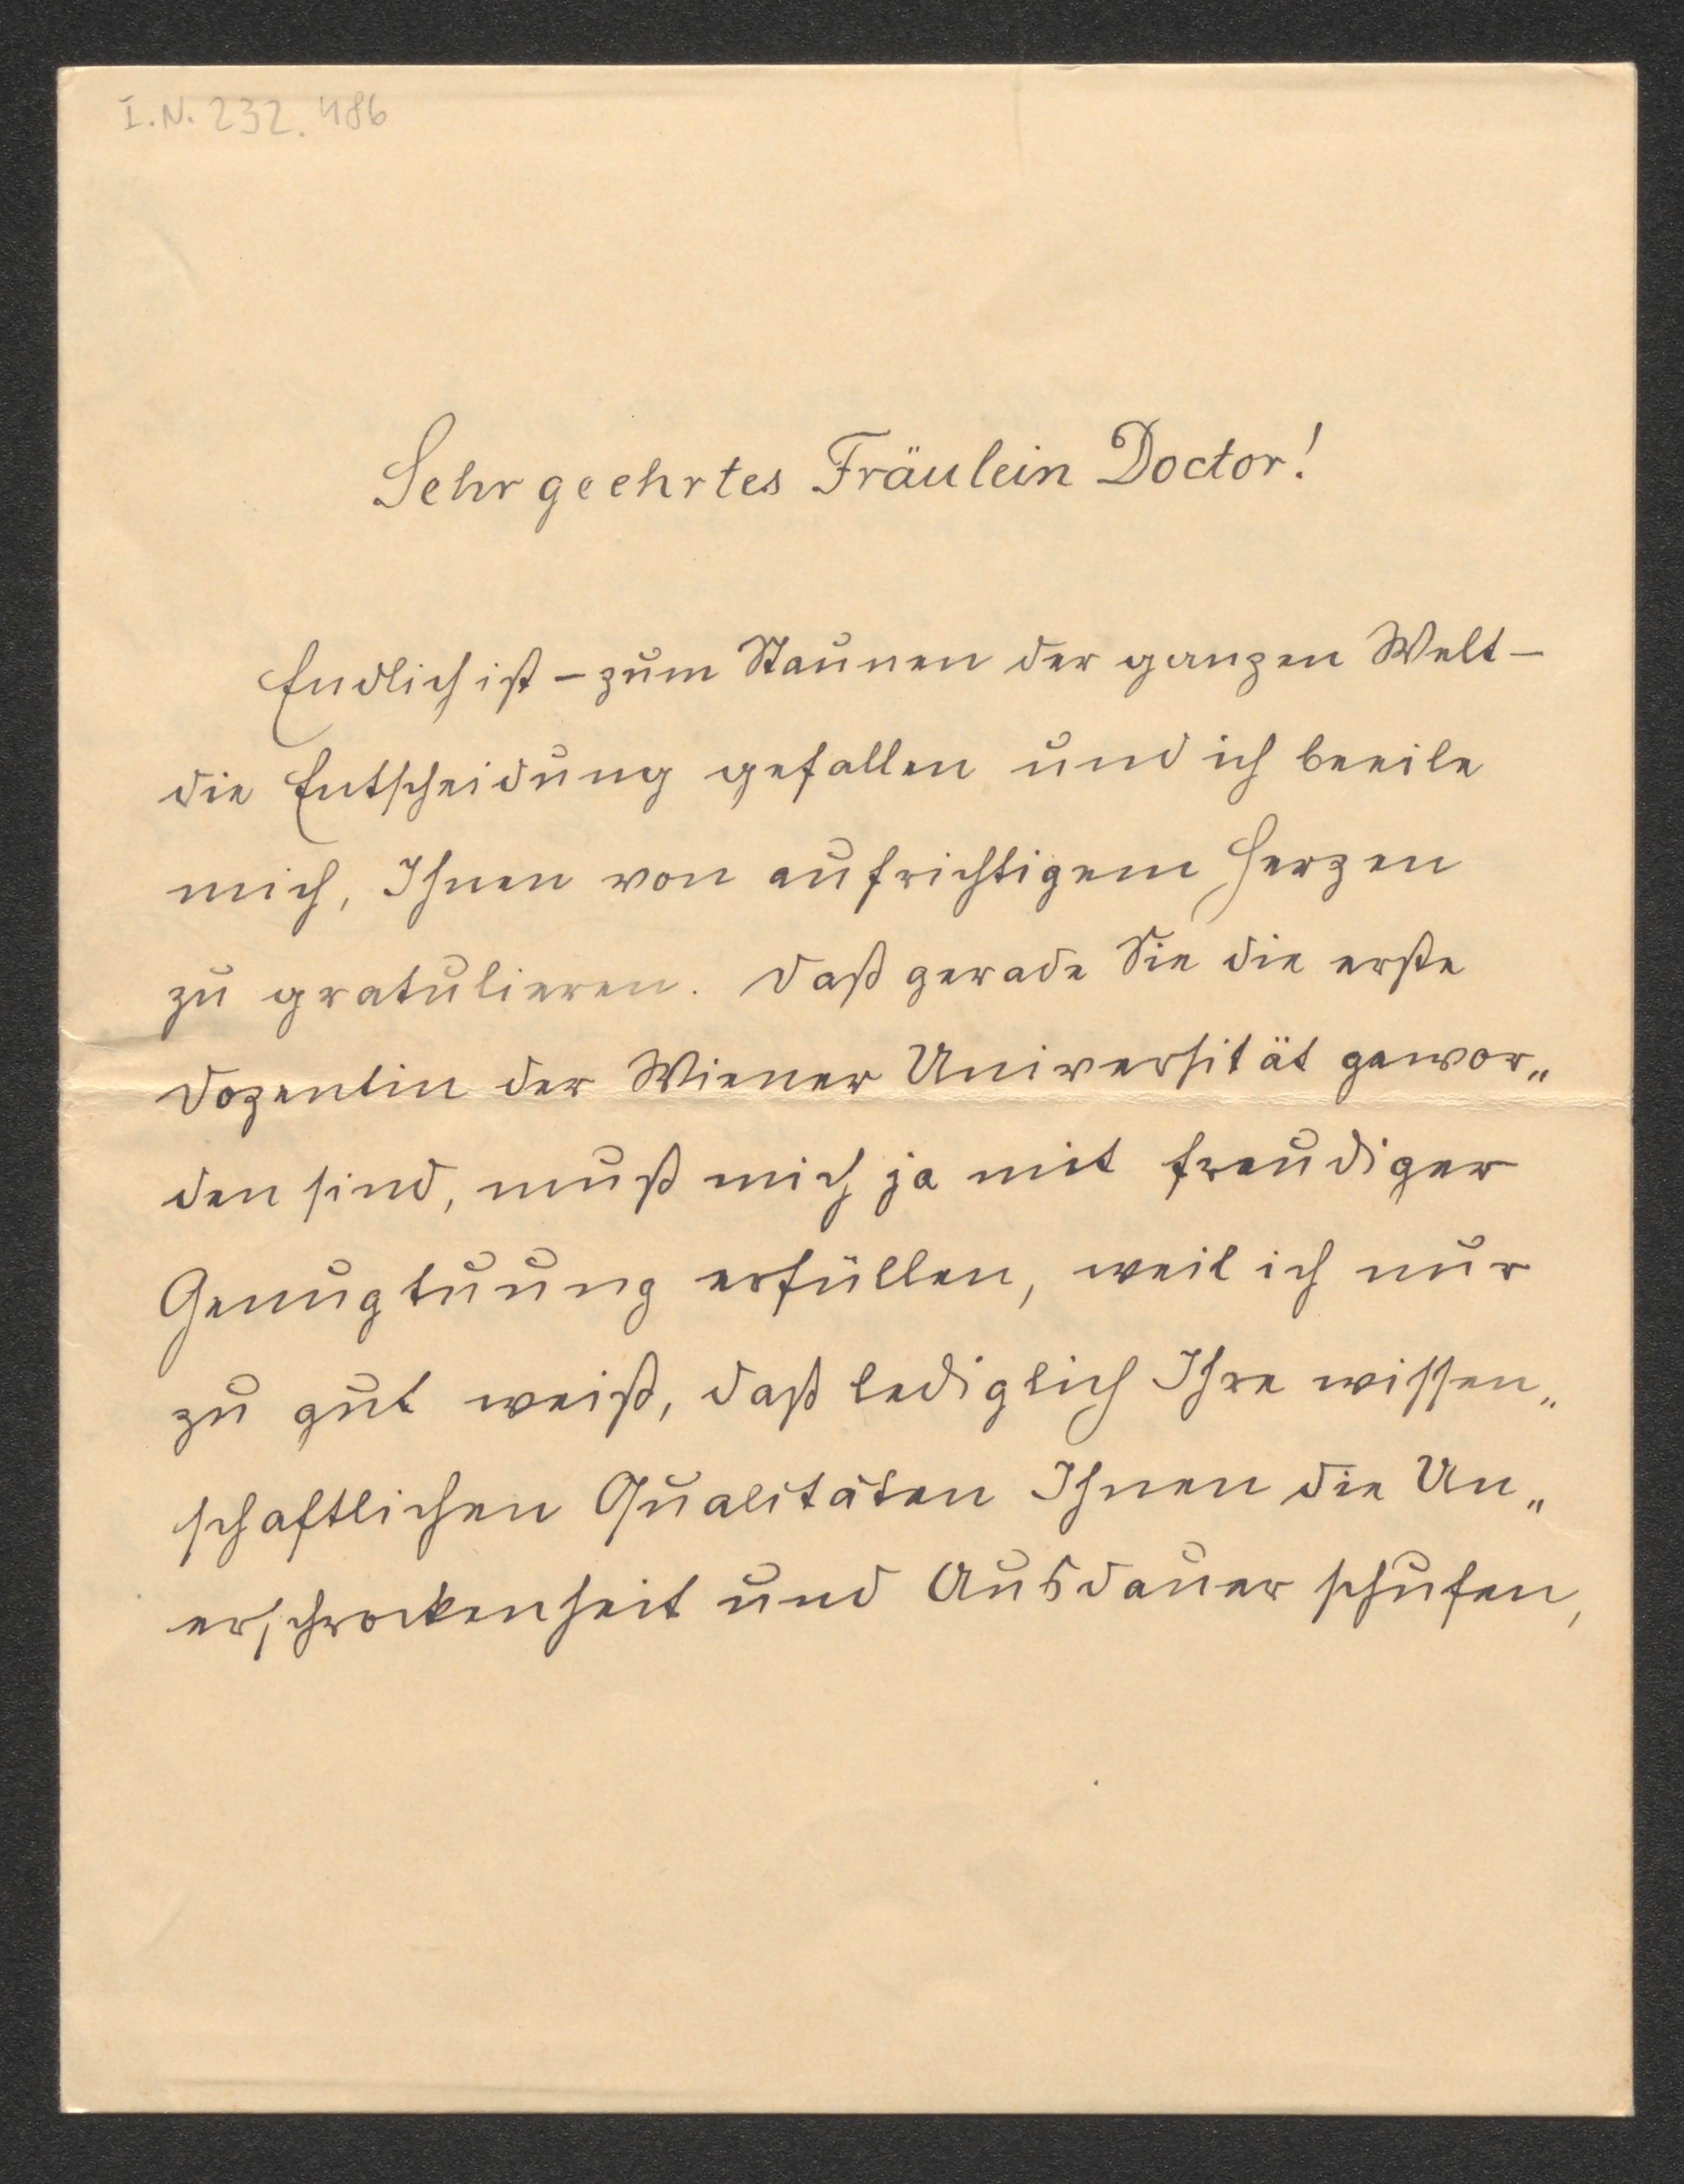 I.N. 232.486
Sehr geehrtes Fräulein Doctor!
Endlich ist – zum Staunen der ganzen Welt –
die Entscheidung gefallen und ich beeile
mich, Ihnen von aufrichtigem Herzen
zu gratulieren. Daß gerade Sie die erste
Dozentin der Wiener Universität gewor„
den sind, muß mich ja mit freudiger
Genugtuung erfüllen, weil ich nur
zu gut weiß, daß lediglich Ihre wissen„
schaftlichen Qualitäten Ihnen die Un„
erschrockenheit und Ausdauer schufen,